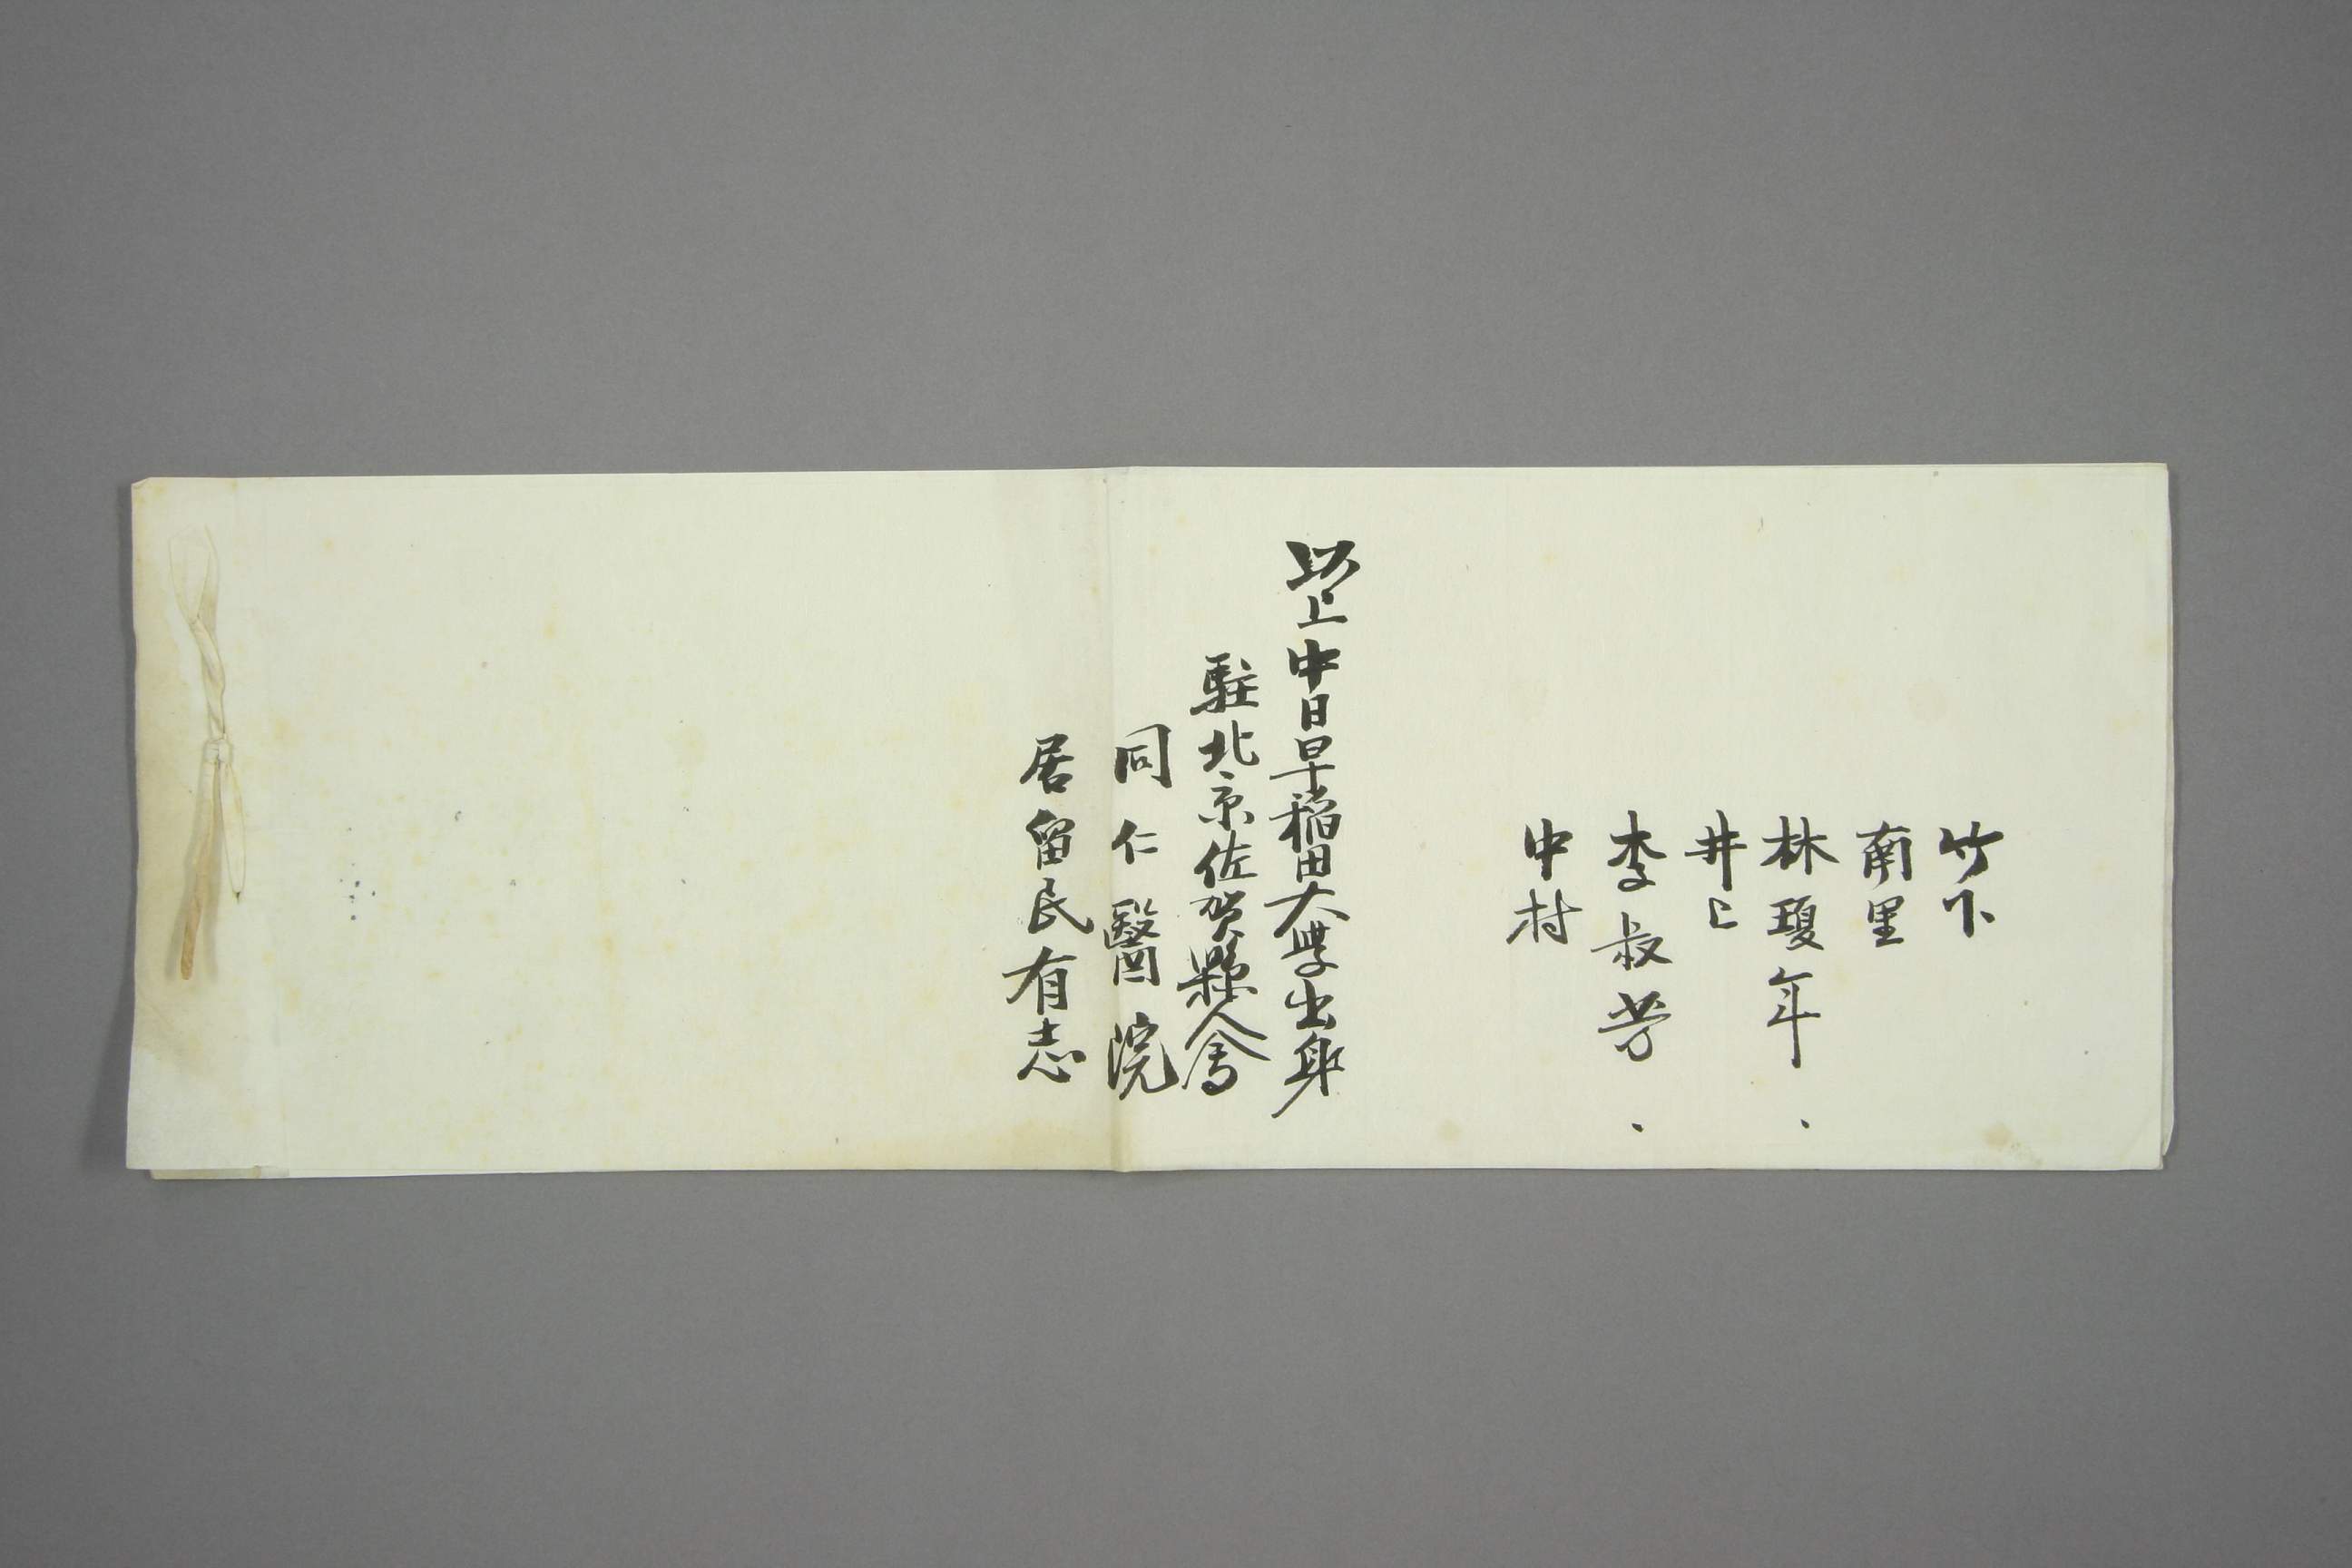 竹下
南里
林瓊年、
井上
李叔芳、
中村
以上中日早稲田大學出身
駐北京佐賀縣人會
同仁醫院
居留民有志